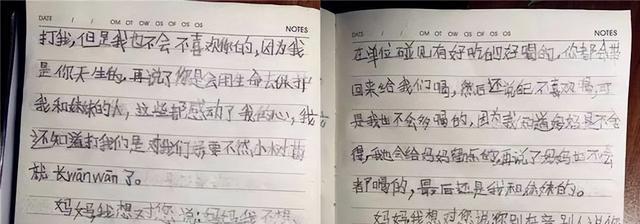 DATE / /
NOTES
打我,但是我也不会不喜欢你的,因为我
是你天生的,再说了您是会用生命去保护
我和妹妹的人,这些都感动了我的心,我
还知道打我们是对我们好要不然小树苗
就长wānwān了。
妈妈我想对您说:妈妈我不想
DATE / /
NOTES
在单位碰见有好吃的好喝的,你都会带
回来给我们喝,然后还说自己不喜欢喝,可
是我也不会多喝的,因为我知道妈妈是不舍
得,我也会给妈妈留点的,再说了妈妈也不会
都喝的,最后还是我和妹妹的。
妈妈我想对您说你别在